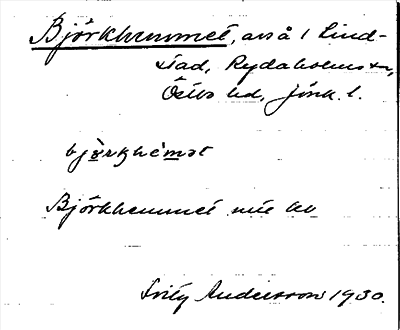 Björkhemmet, avs å 1 Lind-
stad, Rydaholms sn,
Östbo hd, Jönk. l.
björkhemət
Björkhemmet
Fritz Andersson 1930.